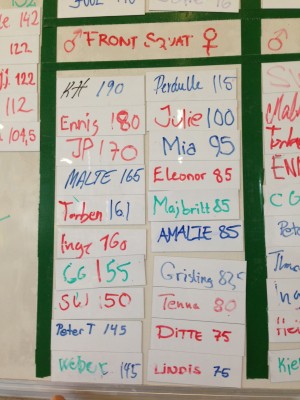 142
122
122
112
104,5
♂ FRONT SQUAT ♀
KH 190
Ennis 180
JP 170
MALTE 165
Torben 161
Inge 160
GG 155
SUJ 150
Peter T 145
Weber 145
Perdulle 115
Julie 100
Mia 95
Eleonor 85
Majbritt 85
AMALIE 85
Grisling 82,5
Tenna 80
DITTE 75
LINDIS 75
♂